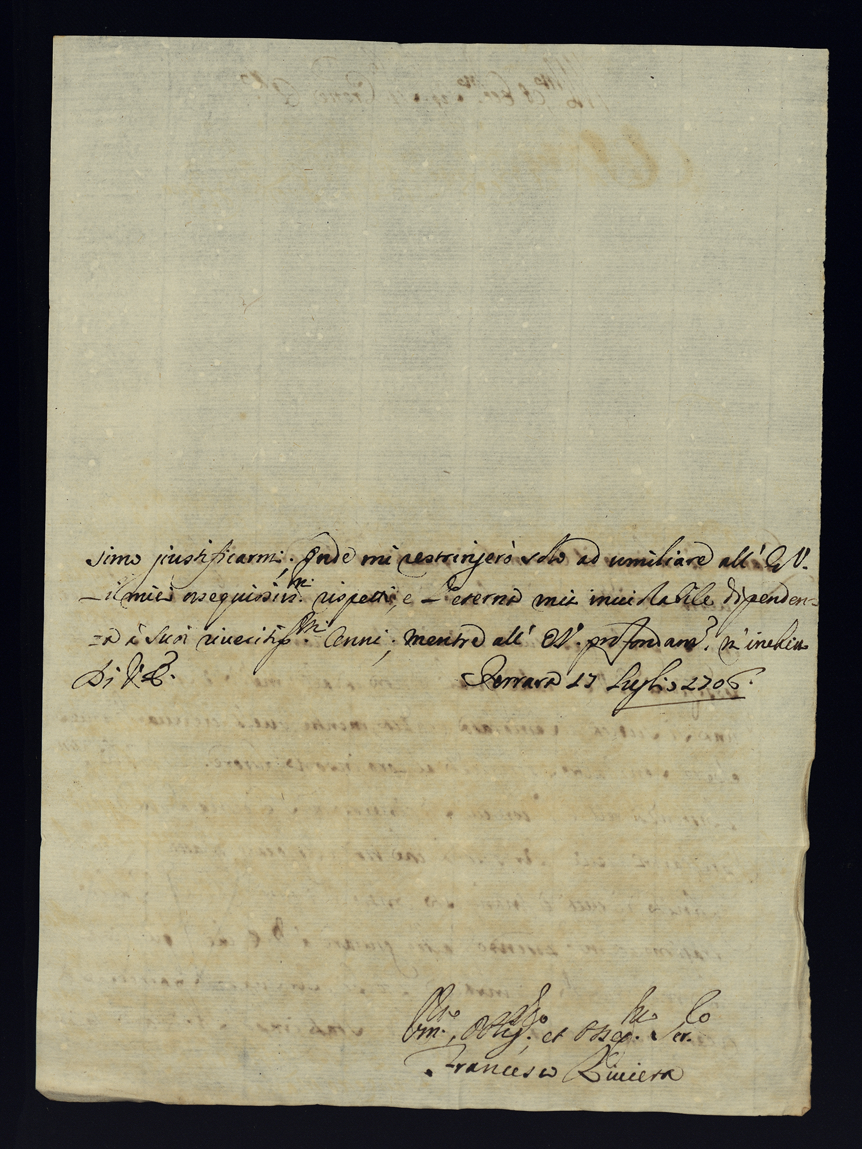 simo justificarmi. Onde mi restrinjerò solo ad umiliare all' E. V.
il miei ossequiosis.mi rispetti, e l'eterna mia inviolabile dipenden-
za à suoi riveritiss.mi Cenni; mentre all' E.V. profondam.e m'inchino
Di V. E.
Ferrara 17 Luglio 1706.
Um.mo, Oblig.mo, et Osseq.mo Ser.e
Francesco Riviera